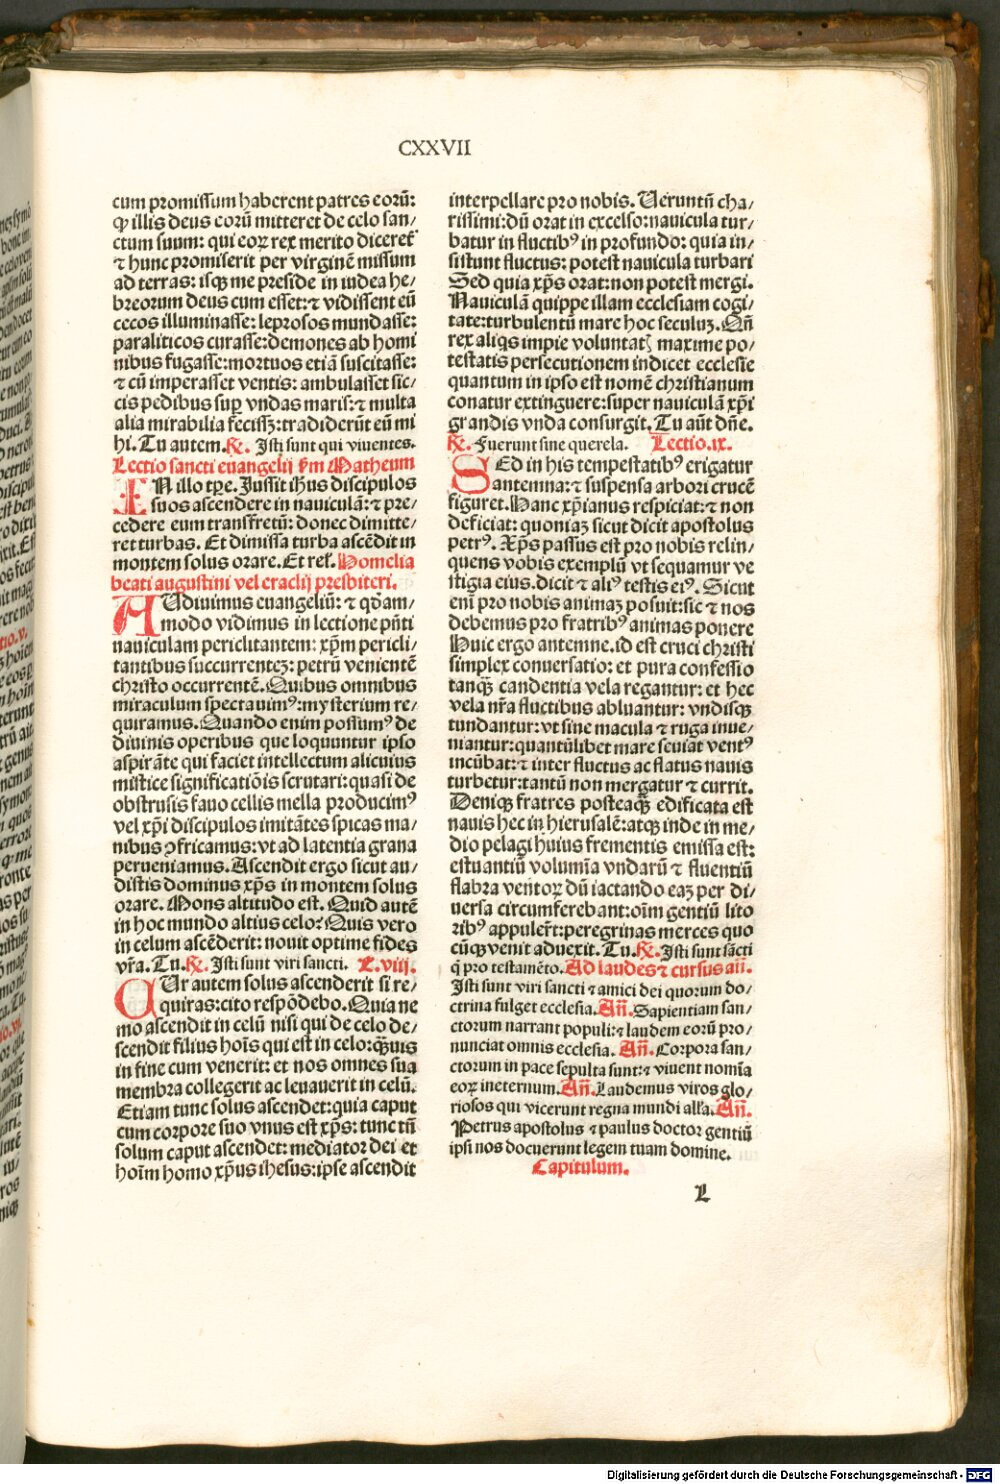 CXXVII
cum promissum haberent patres eorū:
ꝙ illis deus eorū mitteret de celo san/
ctum suum: qui eoꝝ rex merito diceret᷑
⁊ hunc promiserit per virginē missum
ad terras: isqꝫ me preside in iudea he/
breorum deus cum esset:⁊ vidissent eū
cecos illuminasse: leprosos mundasse:
paraliticos curasse: demones ab homi
nibus fugasse: mortuos etiā suscitasse:
⁊ cū imperasset ventis: ambulasset sic/
cis pedibus suꝑ vndas maris:⁊ multa
alia mirabilia fecissꝫ: tradiderūt eū mi
hi. Tu autem. ℟. Isti sunt qui viuentes.
Lectio sancti euangelij ẜm Matheum
IN illo tꝑe. Jussit ihus discipulos
suos ascendere in nauiculā: ⁊ pre/
cedere eum transfretū: donec dimitte/
ret turbas. Et dimissa turba ascēdit in
montem solus orare. Et rel̓. Homelia
beati augustini vel eraclij presbiteri.
AUdiuimus euangeliū: ⁊ qdām/
modo vidimus in lectione pn̄ti
nauiculam periclitantem: xp̄m pericli/
tantibus succurrenteꝫ: petrū venientē
christo occurrentē. Quibus omnibus
miraculum spectauimꝰ: mysterium re/
quiramus. Quando enim possumꝰ de
diuinis operibus que loquuntur ipso
aspirāte qui faciet intellectum alicuius
mistice significatiōis scrutari: quasi de
obstrusis fauo cellis mella producimꝰ
vel xp̄i discipulos imitātes spicas ma/
nibus ꝯfricamus: vt ad latentia grana
perueniamus. Ascendit ergo sicut au/
distis dominus xp̄s in montem solus
orare. Mons altitudo est. Quid autē
in hoc mundo altius celo? Quis vero
in celum ascēderit: nouit optime fides
vr̄a. Tu. ℟. Isti sunt viri sancti. L. viij.
CUr autem solus ascenderit si re/
quiras: cito respōdebo. Quia ne
mo ascendit in celū nisi qui de celo de/
scendit filius hoīs qui est in celo: qꝫ̄uis
in fine cum venerit: et nos omnes sua
membra collegerit ac leuauerit in celū.
Etiam tunc solus ascendet: quia caput
cum corpore suo vnus est xp̄s: tunc tn̄
solum caput ascendet: mediator dei et
hoīm homo xp̄us ihesus: ipse ascendit
interpellare pro nobis. Ueruntn̄ cha/
rissimi: dū orat in excelso: nauicula tur/
batur in fluctibꝰ in profundo: quia in/
sistunt fluctus: potest nauicula turbari
Sed quia xp̄s orat: non potest mergi.
Nauiculā quippe illam ecclesiam cogi/
tate: turbulentū mare hoc seculuꝫ. Qn̄
rex aliqs impie voluntatꝭ maxime po/
testatis persecutionem indicet ecclesie
quantum in ipso est nomē christianum
conatur extinguere: super nauiculā xp̄i
grandis vnda consurgit. Tu aūt dn̄e.
℟. Fuerunt sine querela. Lectio. ix.
SEd in his tempestatibꝰ erigatur
antemna: ⁊ suspensa arbori crucē
figuret. Hanc xp̄ianus respiciat: ⁊ non
deficiat: quoniaꝫ sicut dicit apostolus
petrꝰ. Xp̄s passus est pro nobis relin/
quens vobis exemplū vt sequamur ve
stigia eius. dicit ⁊ aliꝰ testis eiꝰ. Sicut
eni pro nobis animaꝫ posuit: sic ⁊ nos
debemus pro fratribꝰ animas ponere
Huic ergo antemne. id est cruci christi
simplex conuersatio: et pura confessio
tanqꝫ̄ candentia vela regantur: et hec
vela nr̄a fluctibus abluantur: vndisqꝫ
tundantur: vt sine macula ⁊ ruga inue/
niantur: quantūlibet mare seuiat ventꝰ
incūbat: ⁊ inter fluctus ac flatus nauis
turbetur: tantū non mergatur ⁊ currit.
Deniqꝫ fratres posteaqꝫ̄ edificata est
nauis hec in hierusalē: atqꝫ inde in me/
dio pelagi huius frementis emissa est:
estuantiū volumīa vndarū ⁊ fluentiū
flabra ventoꝝ dū iactando eaꝫ per di/
uersa circumferebant: oīm gentiū lito
ribꝰ appulēt: peregrinas merces quo
cūqꝫ venit aduexit. Tu. ℟. Isti sunt sācti
q̄ pro testamēto. Ad laudes ⁊ cursus an̄.
Isti sunt viri sancti ⁊ amici dei quorum do/
ctrina fulget ecclesia. An̄. Sapientiam san/
ctorum narrant populi: ⁊ laudem eorū pro/
nunciat omnis ecclesia. An̄. Corpora san/
ctorum in pace sepulta sunt: ⁊ viuent nomīa
eoꝝ ineternum. An̄. Laudemus viros glo/
riosos qui vicerunt regna mundi alľa. An̄.
Petrus apostolus ⁊ paulus doctor gentiū
ipsi nos docuerunt legem tuam domine.
Capitulum.
L
Digitalisierung gefördert durch die Deutsche Forschungsgemeinschaft - DFG